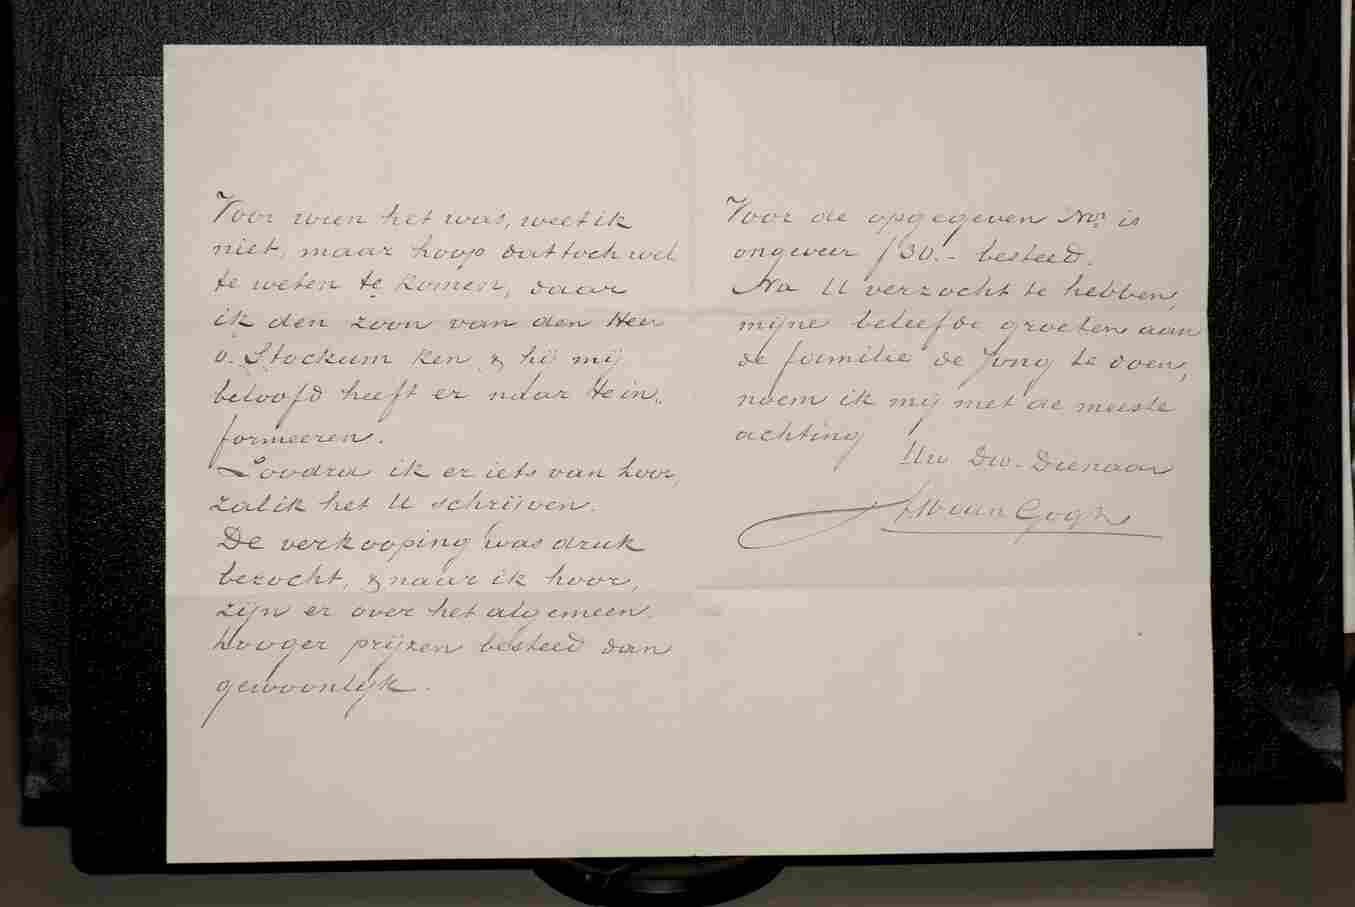 Voor wien het was, weet ik
niet, maar hoop dat toch wel
te weten te komen, daar
ik den zoon van den Heer
v. Stockum ken & hij mij
beloofd heeft er naar te in-
formeeren.
Zoodra ik er iets van hoor,
zal ik het U schrijven.
De verkooping was druk
bezocht, & naar ik hoor,
zijn er over het algemeen
hooger prijzen besteed dan
gewoonlijk.
Voor de opgegeven Nos. is
ongeveer f 30.- besteed.
Na U verzocht te hebben,
mijne beleefde groeten aan
de familie de Jong te doen,
noem ik mij met de meeste
achting
Uw Dw. Dienaar
van Gogh